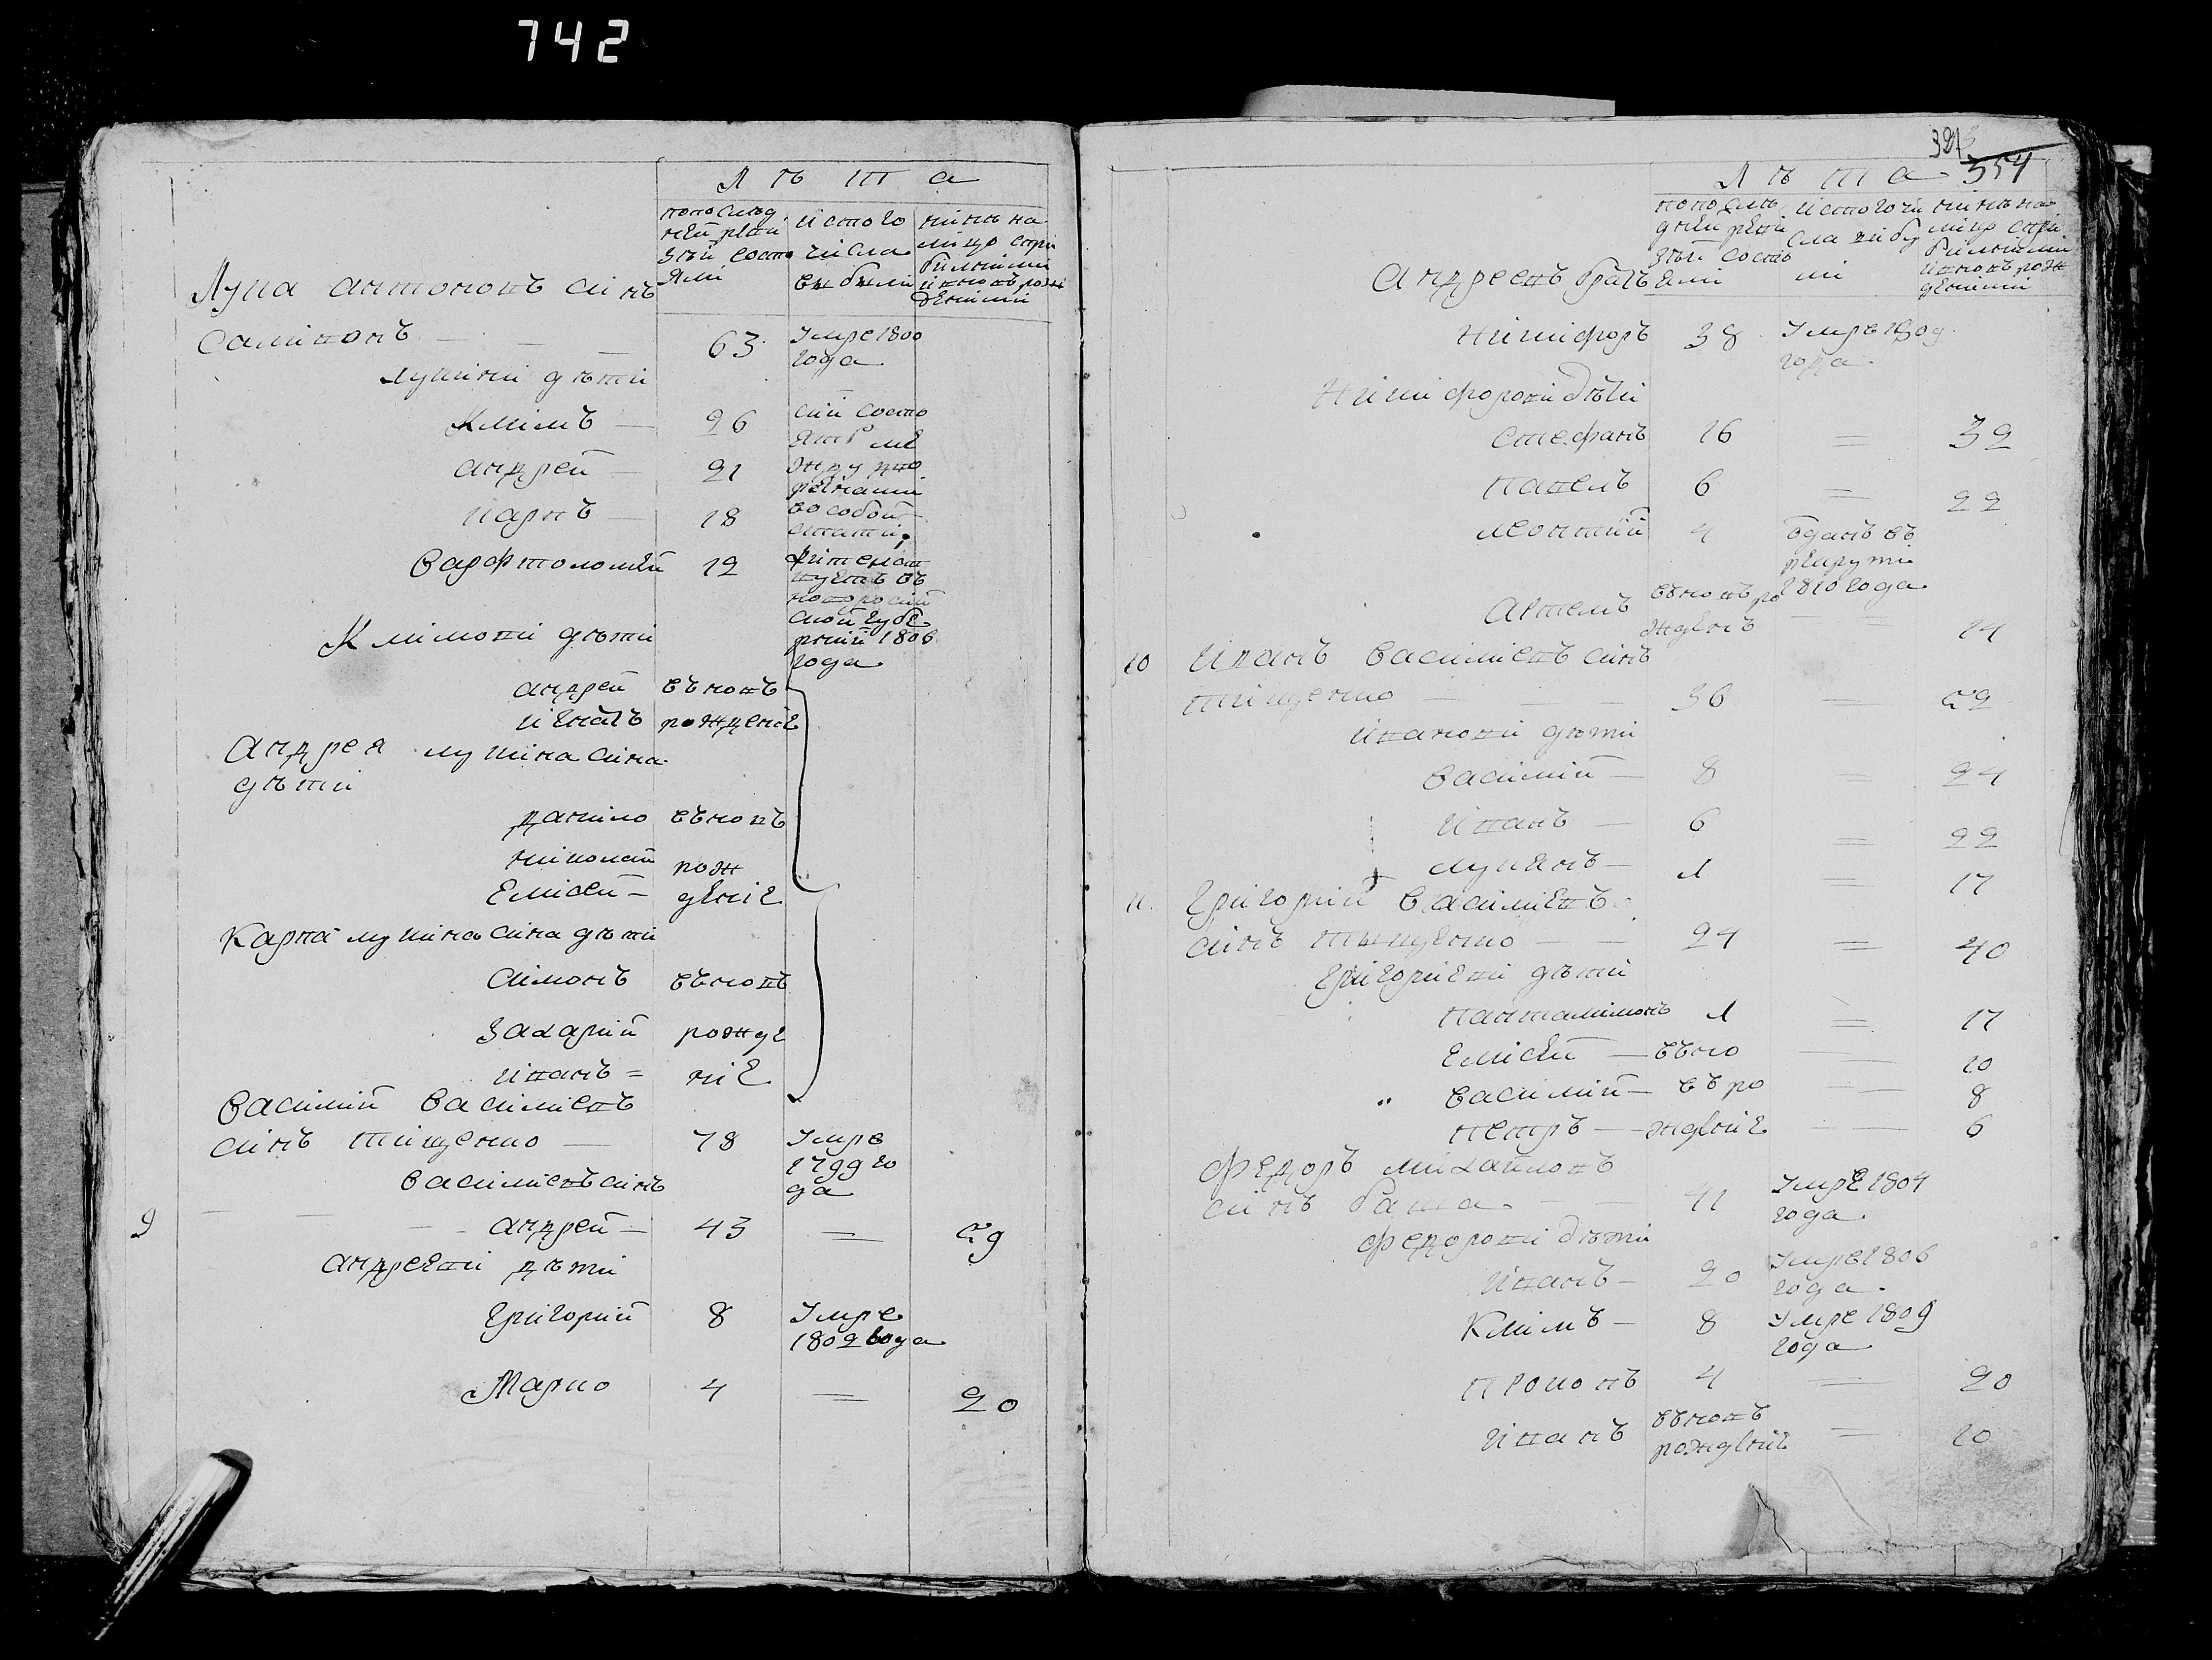 742
Л ѣ т а
попослед
ней реви
зіи состо
яли
исто го
числа
выбыли
нинѣ на
лицо съ при
былими
и новорож
деними
Лука антоновъ синъ
Саліновъ — — — 63 Умре 1800
года
лукини дѣти
Клімъ — 26
андрей — 21
карпъ — 18
Варфтоломей 12
сии состо
ятъ ме
жду дво
рянами
в особой
статьи,
Климови дѣти
андрей вновь
игнатъ рожденіе
Андрея лукина сина
дѣти
данило вновь
николай рож
Елисей — деніе
Карпа лукина сина дѣти
Симонъ вновь
Захарий рожде
иванъ = ніе
Василий Васильевъ
синъ тищенко — 78 Умре
1799 го
да
Васильевъ синъ
9 — — — андрей — 43 = 59
андреяви дѣти
Григорий 8 Умре
1802 года
Марко 4 = 20
323
354
Л ѣ т а
попослѣ
дней реви
зіи состо
яли
исто го чи
сла выбу
ли
нинѣ на
лицо съ при
билими
и новорож
деними
Андреевъ братъ
Никифоръ 38 Умре 1809
года
Никифорови дѣти
Стефанъ 16 = 32
павелъ 6 = 22
леонтий 4 Отданъ въ
рекрути
1810 года
Артемъ вновь ро
жденъ = 14
10 Иванъ Васильевъ синъ
тищенко — — — 36 = 52
Иванови дѣти
Василий — 8 = 24
Иванъ — 6 = 22
лукянъ — 1 = 17
11. Григорий Васильевъ
синъ тищенко — — 24 = 40
Григориеви дѣти
панталимонъ 1 = 17
Елисей — вно = 10
Василий — въ ро = 8
петръ — жденіе = 6
Федоръ михайловъ
синъ Баша — — 41 Умре 1804
года
Федорови дѣти
Иванъ — 20 Умре 1806
года
Климъ — 8 Умре 1809
года
Прокопъ 4 = 20
Иванъ вновь
рожденіе = 10